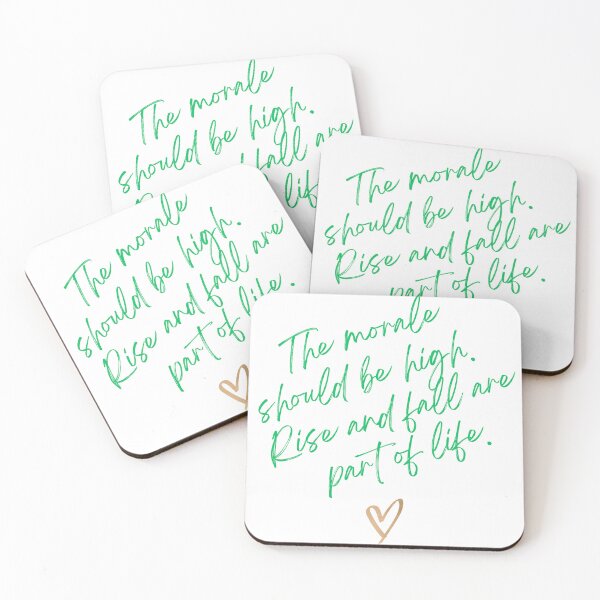 The morale
should be high.
fall are
life
The morale
should be high.
Rise and fall are
part of life.
The morale
should be high.
Rise and fall are
part of life.
The morale
should be high.
Rise and fall are
part of life.